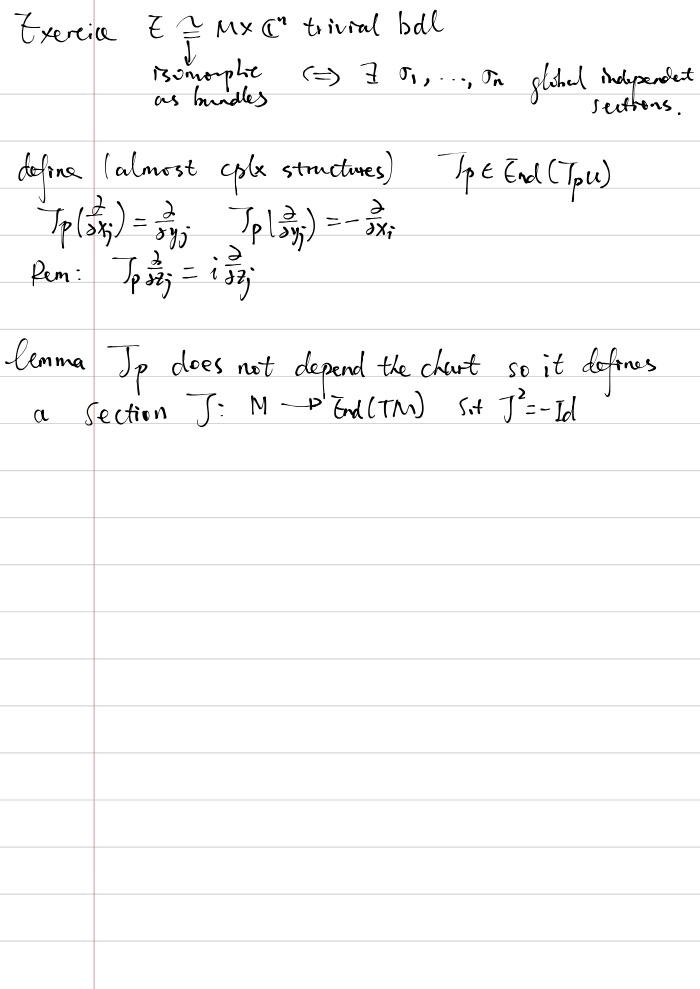 Exercice E ≅ M × ℂⁿ trivial bdl
↓
isomorphic as bundles ⟺ ∃ σ₁, ..., σₙ global independent sections.
define (almost cplx structures) J_p ∈ End(T_pU)
J_p(∂/∂x_j) = ∂/∂y_j J_p(∂/∂y_j) = -∂/∂x_i
Rem: J_p ∂/∂z_j = i ∂/∂z_j
lemma J_p does not depend the chart so it defines
a section J: M → End(TM) s.t J² = -Id